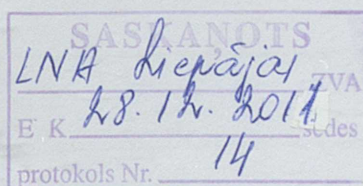 SASKAŅOTS
LNA Liepājas ZVA
28.12.2011
E K sēdes
protokols Nr. 14